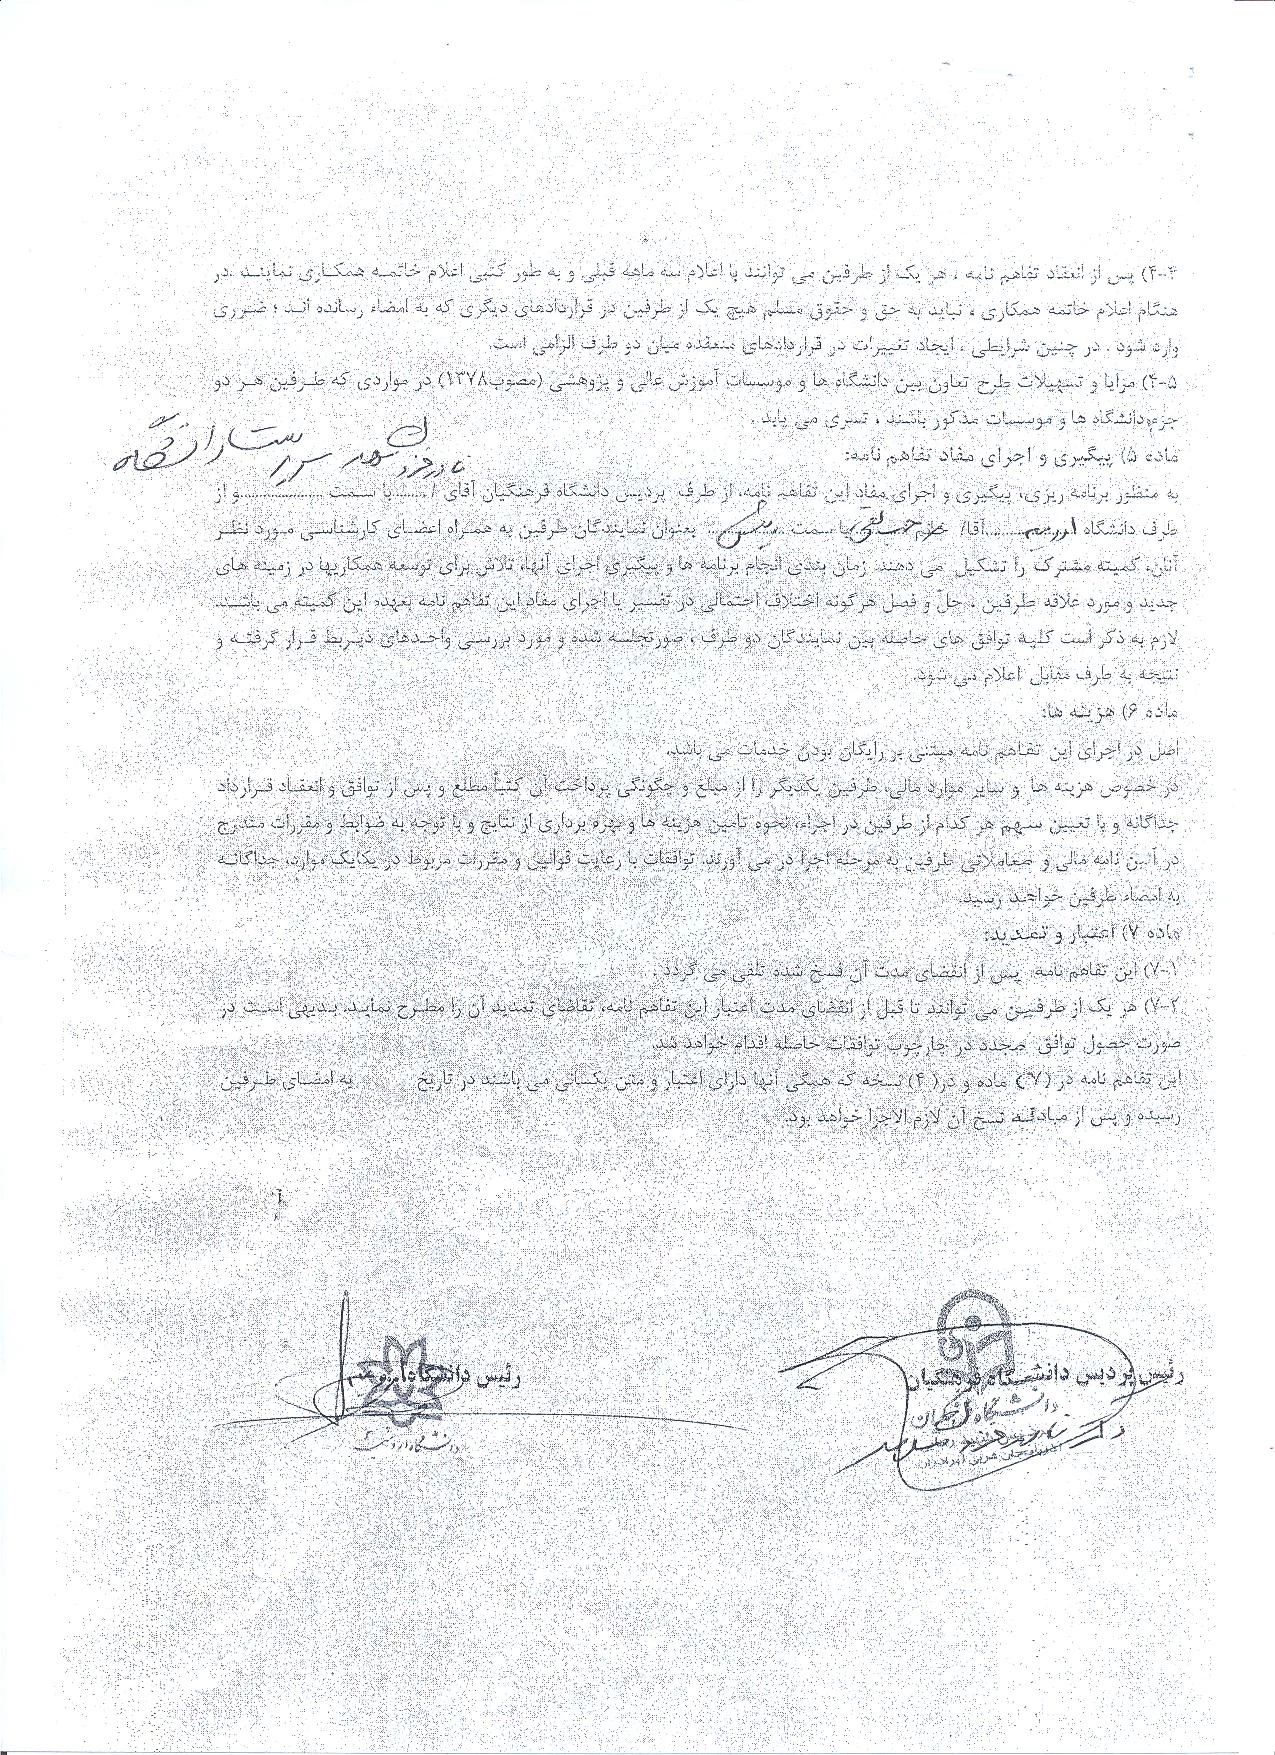 ۴-۴) پس از انعقاد تفاهم نامه ، هر یک از طرفین می توانند با اعلام سه ماهه قبلی و به طور کتبی اعلام خاتمه همکاری نمایند .در
هنگام اعلام خاتمه همکاری ، نباید به حق و حقوق مسلم هیچ یک از طرفین در قراردادهای دیگری که به امضاء رسانده اند ؛ ضرری
وارد شود . در چنین شرایطی ، ایجاد تغییرات در قراردادهای منعقده میان دو طرف الزامی است.
۴-۵) مزایا و تسهیلات طرح تعاون بین دانشگاه ها و موسسات آموزش عالی و پژوهشی (مصوب۱۳۷۸) در مواردی که طرفین هر دو
جزءدانشگاه ها و موسسات مذکور باشند ، تسری می یابد .
ماده ۵) پیگیری و اجرای مفاد تفاهم نامه:
به منظور برنامه ریزی، پیگیری و اجرای مفاد این تفاهم نامه، از طرف پردیس دانشگاه فرهنگیان آقای / ........با سمت ....................و از
طرف دانشگاه ..........آقا/ با سمت .......... بعنوان نمایندگان طرفین به همراه اعضای کارشناسی مورد نظر
آنان، کمیته مشترک را تشکیل می دهند. زمان بندی انجام برنامه ها و پیگیری اجرای آنها، تلاش برای توسعه همکاریها در زمینه های
جدید و مورد علاقه طرفین ، حلّ و فصل هرگونه اختلاف احتمالی در تفسیر یا اجرای مفاد این تفاهم نامه بعهده این کمیته می باشد.
لازم به ذکر است کلیه توافق های حاصله بین نمایندگان دو طرف ، صورتجلسه شده و مورد بررسی واحدهای ذیربط قرار گرفته و
نتیجه به طرف مقابل اعلام می شود.
ماده ۶) هزینه ها:
اصل در اجرای این تفاهم نامه مبتنی بر رایگان بودن خدمات می باشد.
در خصوص هزینه ها و سایر موارد مالی، طرفین یکدیگر را از مبلغ و چگونگی پرداخت آن کتباً مطلع و پس از توافق و انعقاد قرارداد
جداگانه و با تعیین سهم هر کدام از طرفین در اجراء، نحوه تامین هزینه ها و بهره برداری از نتایج و با توجه به ضوابط و مقررات مندرج
در آئین نامه مالی و معاملاتی طرفین به مرحله اجرا در می آورند. توافقات با رعایت قوانین و مقررات مربوط در یکایک موارد، جداگانه
به امضاء طرفین خواهد رسید.
ماده ۷) اعتبار و تمدید:
۷-۱) این تفاهم نامه پس از انقضای مدت آن فسخ شده تلقی می گردد .
۷-۲) هر یک از طرفین می توانند تا قبل از انقضای مدت اعتبار این تفاهم نامه، تقاضای تمدید آن را مطرح نماید. بدیهی است در
صورت حصول توافق مجدد در چارچوب توافقات حاصله اقدام خواهد شد.
این تفاهم نامه در (۷) ماده و در( ۴) نسخه که همگی آنها دارای اعتبار و متن یکسانی می باشند در تاریخ به امضای طرفین
رسیده و پس از مبادله نسخ آن لازم الاجرا خواهد بود.
رئیس پردیس دانشگاه فرهنگیان
رئیس دانشگاه